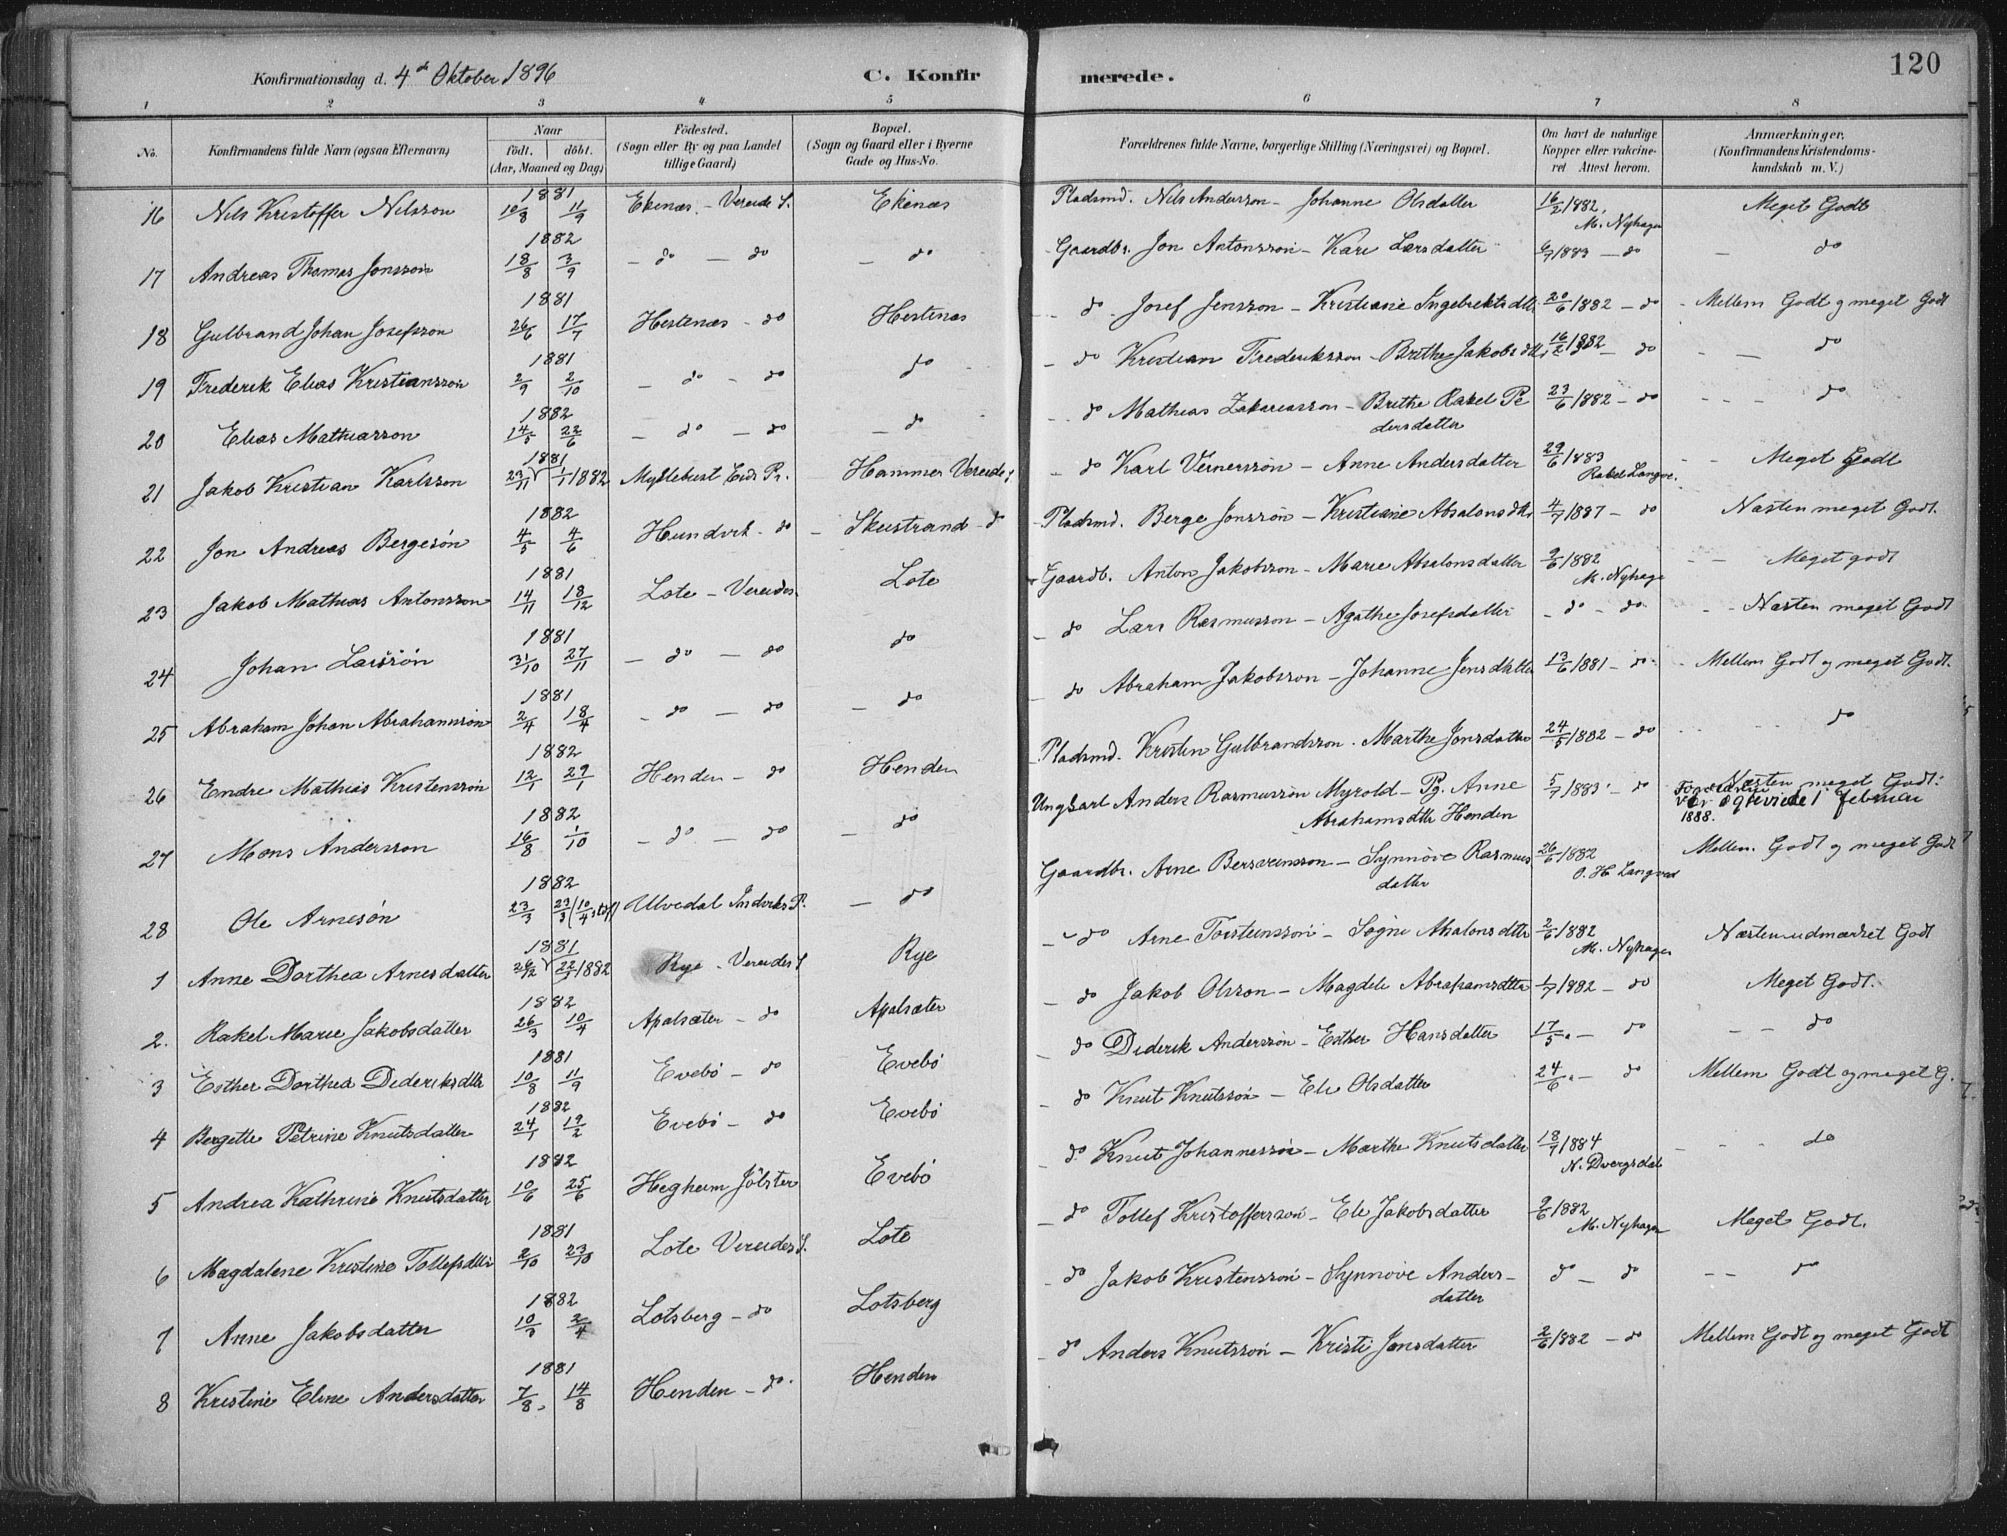 Konfirmationsdag d. 4de Oktober 1896
C. Konfirmerede.
120
1 2 3 4 5 6 7 8
No.
Konfirmandens fulde Navn (ogsaa Efternavn)
Naar
födt. döbt.
(Aar, Maaned og Dag)
Födested.
(Sogn eller By og paa Landet tillige Gaard)
Bopæl.
(Sogn og Gaard eller i Byerne Gade og Hus-No.
Forældrenes fulde Navne, borgerlige Stilling (Næringsvei) og Bopæl.
Om havt de naturlige Kopper eller vakcineret Attest herom.
Anmærkninger.
(Konfirmandens Kristendomskundskab m. V.)
16 Nils Kristoffer Nilsson 1881 10/8 11/9 Ekenæs - Vereide S. Ekenæs Pladsmd. Nils Andersson - Johanne Olsdatter 16/2 1882, M. Nyhagen Meget Godt
17 Andreas Thomas Jonsson 1882 18/8 3/9 - do - do - do Gaardbr. Jon Antonsson - Kari Larsdatter 6/7 1883 - do - do
18 Gulbrand Johan Josefsson 1881 26/6 17/7 Hestenæs - do Hestenæs - do Josef Jensson - Kristiane Ingebrektsdtr 20/6 1882 - do - Mellem Godt og meget Godt
19 Frederik Elias Kristiansson 1881 2/9 2/10 - do - do do - do Kristian Frederiksson - Brithe Jakobsdtr 16/2 1882 - do - do
20 Elias Mathiasson 1882 14/5 22/6 - do - do - do - do Mathias Zakariasson - Brithe Rakel Pedersdatter 23/6 1882 - do - do
21 Jakob Kristian Karlsson 1881 23/11 1/1 1882 Myklebust Eids Pr. Hammer Vereide S. - do Karl Vernersson - Anne Andersdatter 29/6 1883 Rakel Langve. Meget Godt
22 Jon Andreas Bergesön 1882 4/5 4/6 Hundvik - do Skeistrand - do Pladsmd. Berge Jonssön - Kristiane Absalonsdtr 4/7 1887 - do Næsten meget Godt.
23 Jakob Mathias Antonsson 1881 14/11 18/12 Lote - Vereides. Lote Gaardb. Anton Jakobsson - Marie Absalonsdatter 2/6 1882 M. Nyhage - Meget godt
24 Johan Larssön 1881 31/10 27/11 - do - do do - do Lars Rasmusson - Agathe Josefsdatter - do - do - Næsten meget Godt
25 Abraham Johan Abrahamssön 1881 2/4 18/4 - do - do - do - do Abraham Jakobsson - Johanne Jensdatter 13/6 1881 - do - Mellem Godt og meget Godt.
26 Endre Mathias Kristenssön 1882 12/1 29/1 Henden - do Henden Pladsmd. Kristen Gulbrandsson - Marthe Jonsdatter 24/5 1882 - do - do
27 Mons Andersson 1882 16/8 1/10 - do - do - do Ungkarl Anders Rasmussön Myrold - Pg. Anne Abrahamsdtr Henden 5/7 1883 - do Næsten meget Godt. Forældrene var ægteviede 1 februar 1888.
28 Ole Arnesön 1882 23/3 23/3 (10/4 stf) Ulvedal Indviks P. - do Gaardbr. Arne Bersvensson - Synnöve Rasmusdatter 26/6 1882 O. H. Langved Mellem Godt og meget Godt
1 Anne Dorthea Arnesdatter 1881 26/12 22/1 1882 Rye - Vereides S Rye - do Arne Torsteinssön - Sögni Absalonsdtr 2/6 1882 M. Nyhagen Næsten udmærket Godt
2. Rakel Marie Jakobsdatter 1882 26/3 10/4 Apalsæter - do Apalsæter - do Jakob Olsson - Magdeli Abrahamsdtr 1/7 1882 - do Meget Godt.
3 Esther Dorthea Dideriksdtr 1881 10/8 11/9 Evebö - do Evebö - do Diderik Anderssön - Esther Hansdatter 17/5 - do - - do
4 Bergette Petrine Knutsdatter 1882 24/1 19/2 Evebö - do Evebö - do Knut Knutssön - Eli Olsdatter 24/6 - do Mellem Godt og meget G.
5 Andrea Kathrine Knutsdatter 1882 10/6 25/6 Hegheim Jölster Evebö - do Knut Johannessön - Marthe Knutsdatter 18/7 1884 N. Dvergsdal - do
6 Magdalene Kristine Tollefsdtr 1881 2/10 23/10 Lote Vereides S. Lote - do Tollef Kristofferssön - Eli Jakobsdatter 2/6 1882 M. Nyhagen Meget Godt.
7 Anne Jakobsdatter 1882 10/3 2/4 Lotsberg - do Lotsberg - do Jakob Kristenssön - Synnöve Andersdatter do - do - - do
8 Kristine Eline Andersdatter 1881 7/8 14/8 Henden - do Henden - do Anders Knutssön - Kristi Jonsdatter 2/6 1882 - do Mellem Godt og meget Godt